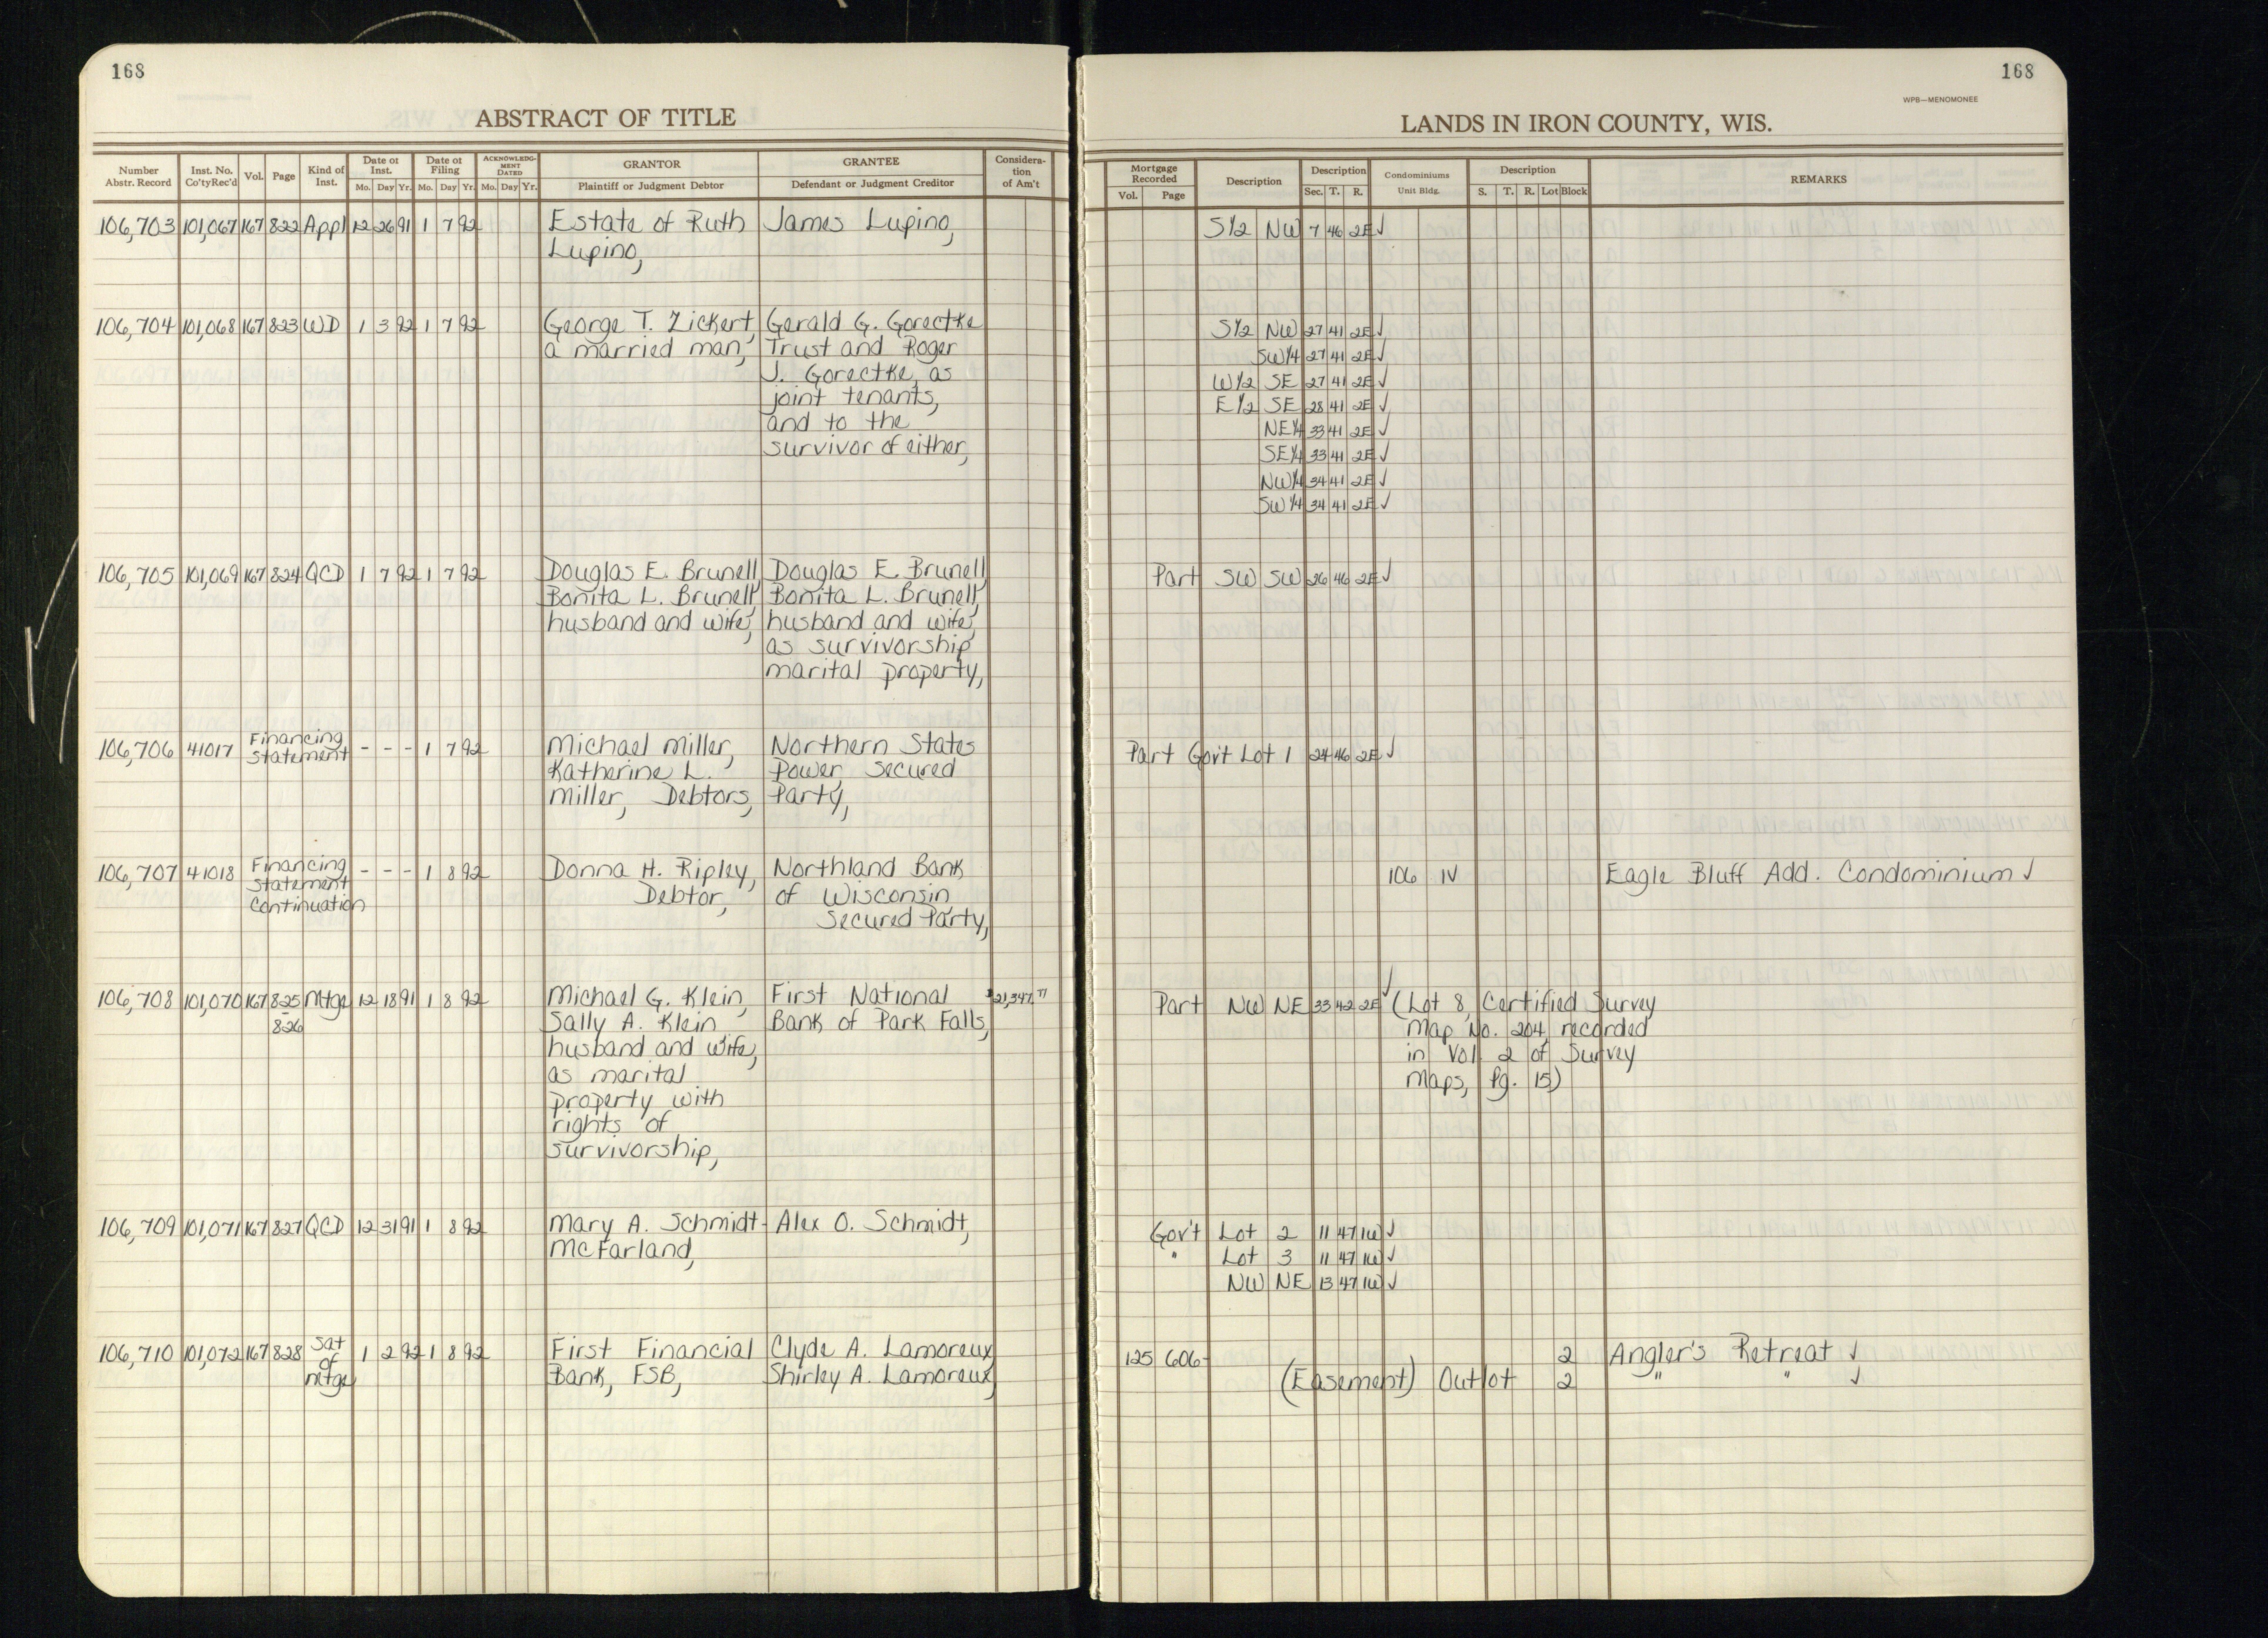 168
ABSTRACT OF TITLE
Number Abstr. Record | Inst. No. Co'ty Rec'd | Vol. | Page | Kind of Inst. | Date of Inst. Mo. Day Yr. | Date of Filing Mo. Day Yr. | ACKNOWLEDGMENT DATED Mo. Day Yr. | GRANTOR Plaintiff or Judgment Debtor | GRANTEE Defendant or Judgment Creditor | Consideration of Am't
106,703 101,067 167 822 Appl 12 26 91 1 7 92 Estate of Ruth James Lupino,
Lupino,
106,704 101,068 167 823 WD 1 3 92 1 7 92 George T. Zickert, Gerald G. Gorectke
a married man, Trust and Roger
J. Gorectke, as
joint tenants,
and to the
survivor of either,
106,705 101,069 167 824 QCD 1 7 92 1 7 92 Douglas E. Brunell, Douglas E. Brunell,
Bonita L. Brunell, Bonita L. Brunell,
husband and wife, husband and wife,
as survivorship
marital property,
106,706 41017 Financing Statement - - - 1 7 92 Michael Miller, Northern States
Katherine L. Power, Secured
Miller, Debtors, Party,
106,707 41018 Financing Statement Continuation - - - 1 8 92 Donna H. Ripley, Northland Bank
Debtor, of Wisconsin
Secured Party,
106,708 101,070 167 825 - 826 Mtge 12 18 91 1 8 92 Michael G. Klein, First National $21,347.71
Sally A. Klein Bank of Park Falls,
husband and wife,
as marital
property with
rights of
survivorship,
106,709 101,071 167 827 QCD 12 31 91 1 8 92 Mary A. Schmidt- Alex O. Schmidt,
McFarland,
106,710 101,072 167 828 Sat of mtge 1 2 92 1 8 92 First Financial Clyde A. Lamoreux,
Bank, FSB, Shirley A. Lamoreux,
168
WPB—MENOMONEE
LANDS IN IRON COUNTY, WIS.
Mortgage Recorded Vol. Page | Description | Description Sec. T. R. | Condominiums Unit Bldg. | Description S. T. R. Lot Block | REMARKS
S½ NW 7 46 2E ✓
S½ NW 27 41 2E ✓
SW¼ 27 41 2E ✓
W½ SE 27 41 2E ✓
E½ SE 28 41 2E ✓
NE¼ 33 41 2E ✓
SE¼ 33 41 2E ✓
NW¼ 34 41 2E ✓
SW¼ 34 41 2E ✓
Part SW SW 26 46 2E ✓
Part Gov't Lot 1 24 46 2E ✓
106 IV Eagle Bluff Add. Condominium ✓
Part NW NE 33 42 2E ✓ (Lot 8, Certified Survey
Map No. 204, recorded
in Vol. 2 of Survey
Maps, Pg. 15)
Gov't Lot 2 11 47 1W ✓
" Lot 3 11 47 1W ✓
NW NE 13 47 1W ✓
125 606 2 Angler's Retreat ✓
(Easement) Outlot 2 " " ✓